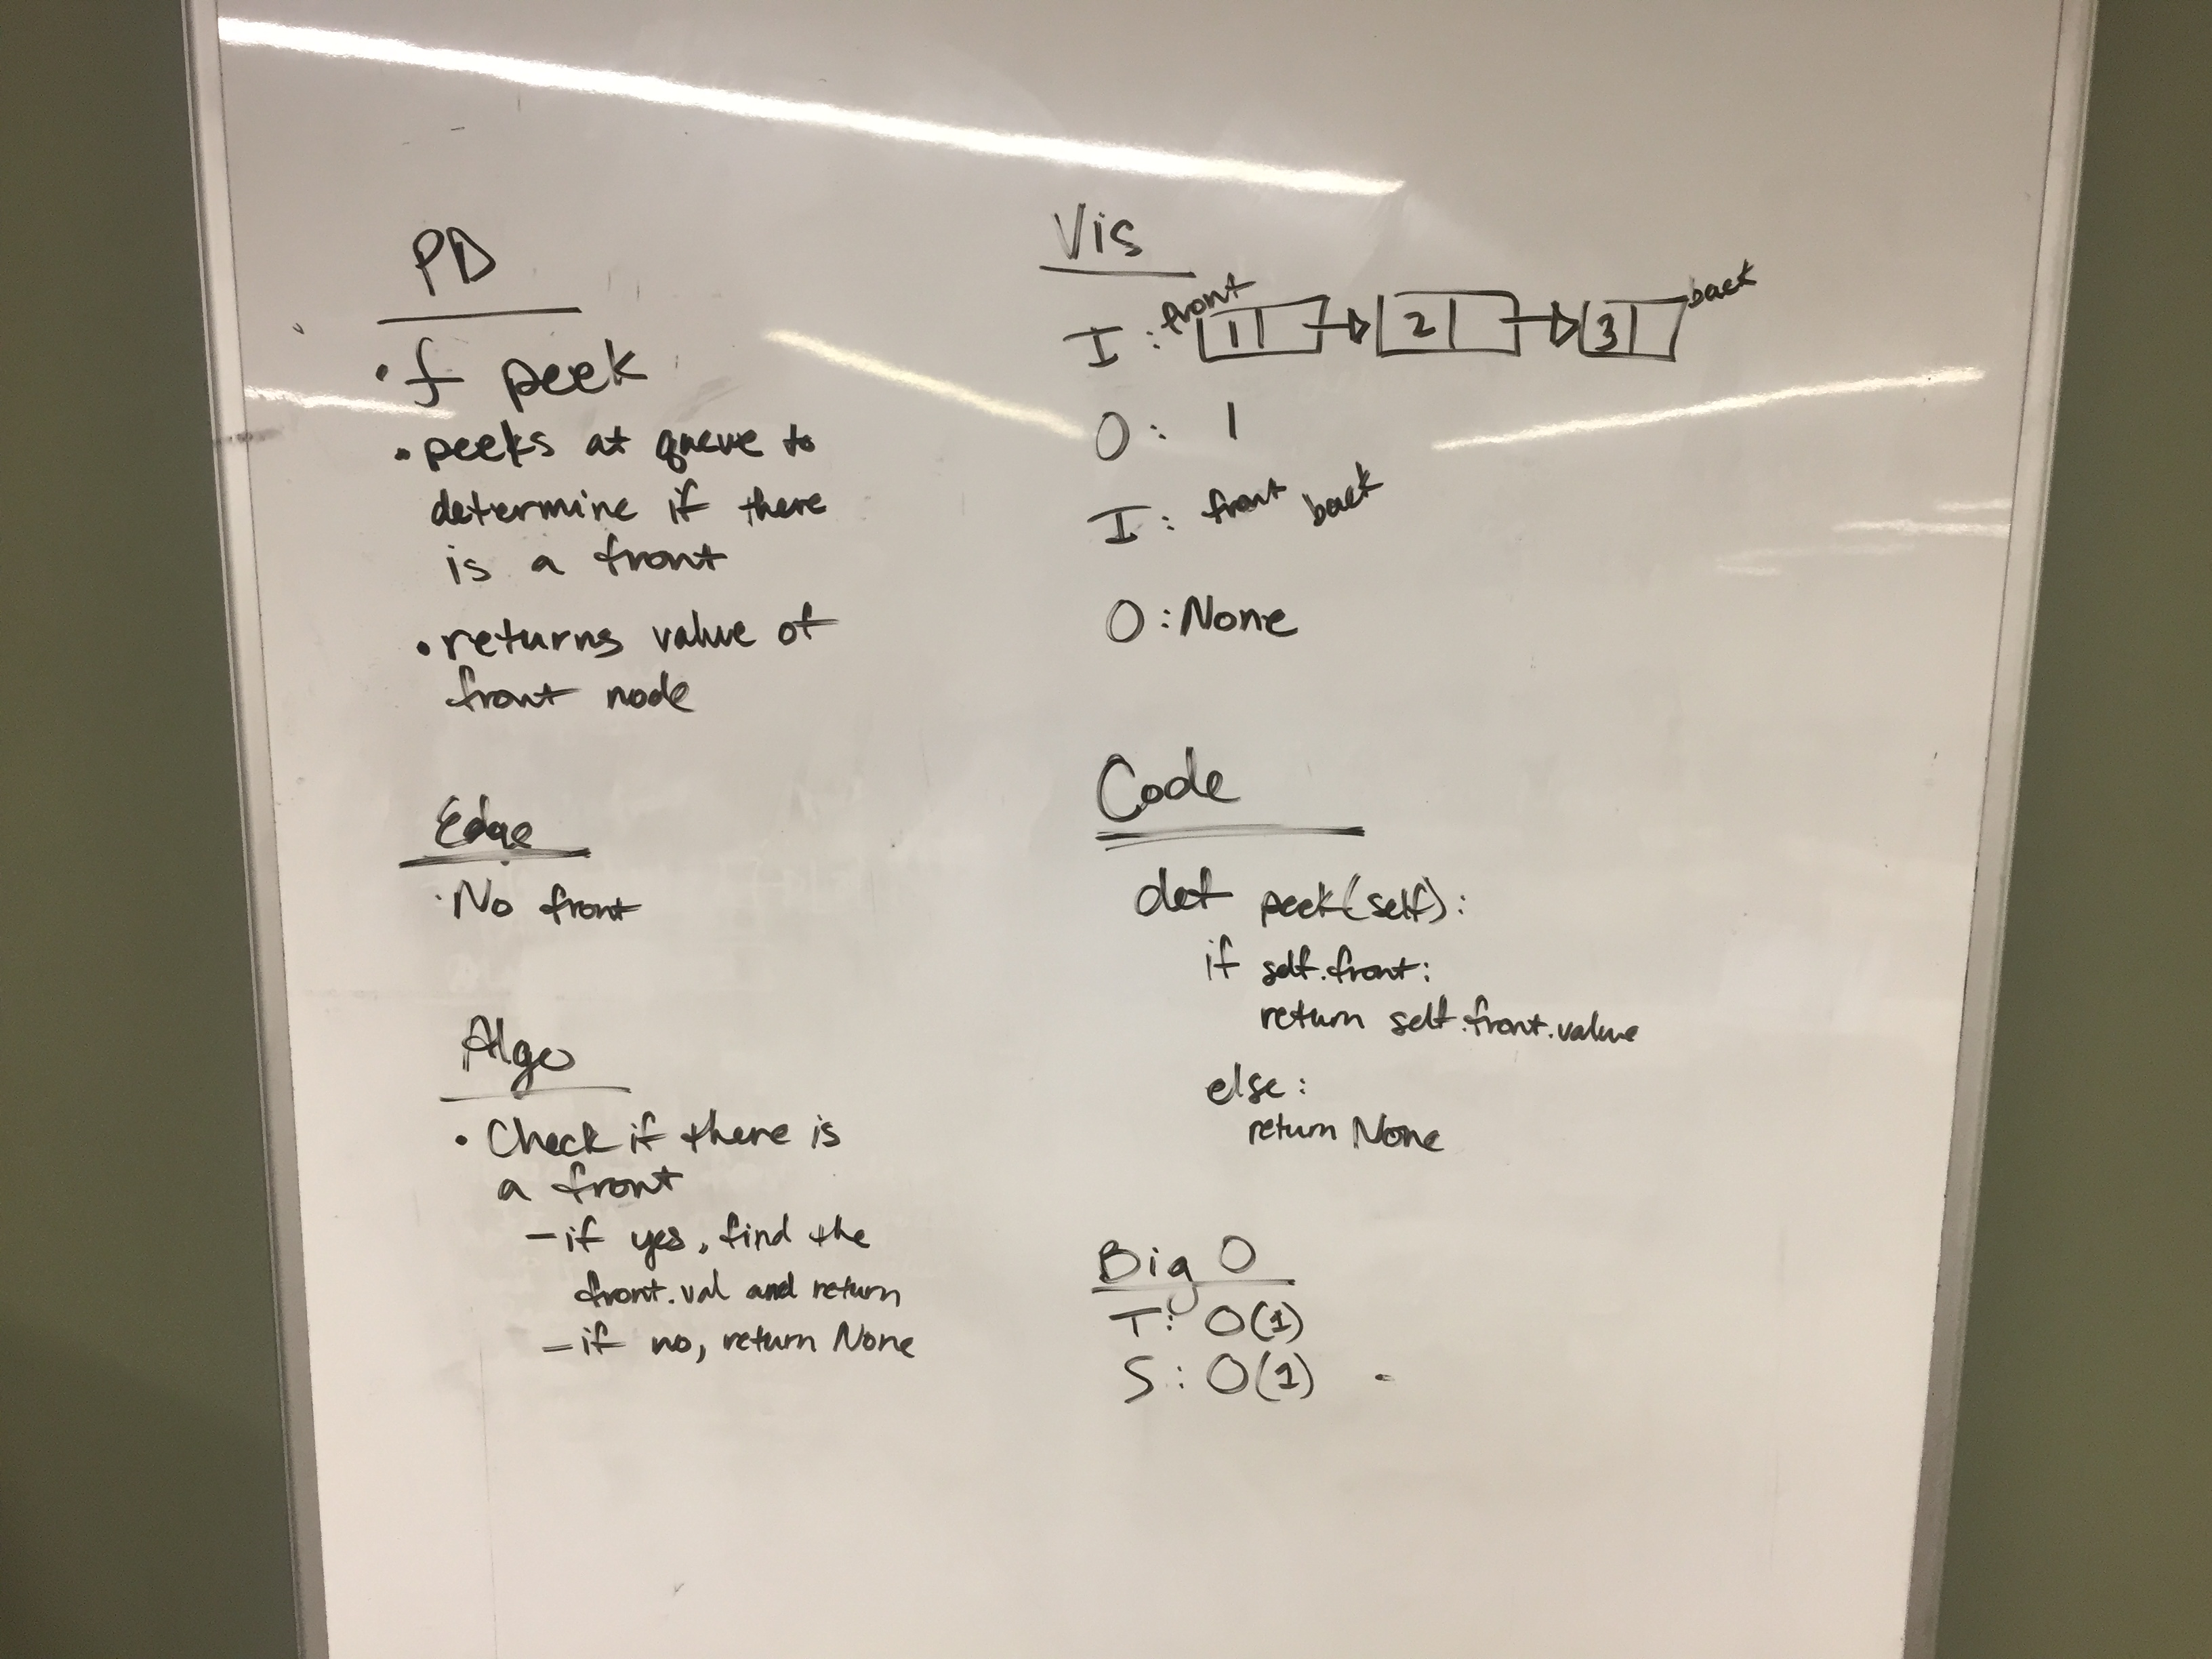 PD
• f peek
• peeks at queue to
determine if there
is a front
• returns value of
front node
Edge
• No front
Algo
• Check if there is
a front
- if yes, find the
front.val and return
- if no, return None
Vis
I: front 1 2 3 back
O: 1
I: front back
O: None
Code
def peek(self):
if self.front:
return self.front.value
else:
return None
Big O
T: O(1)
S: O(1)